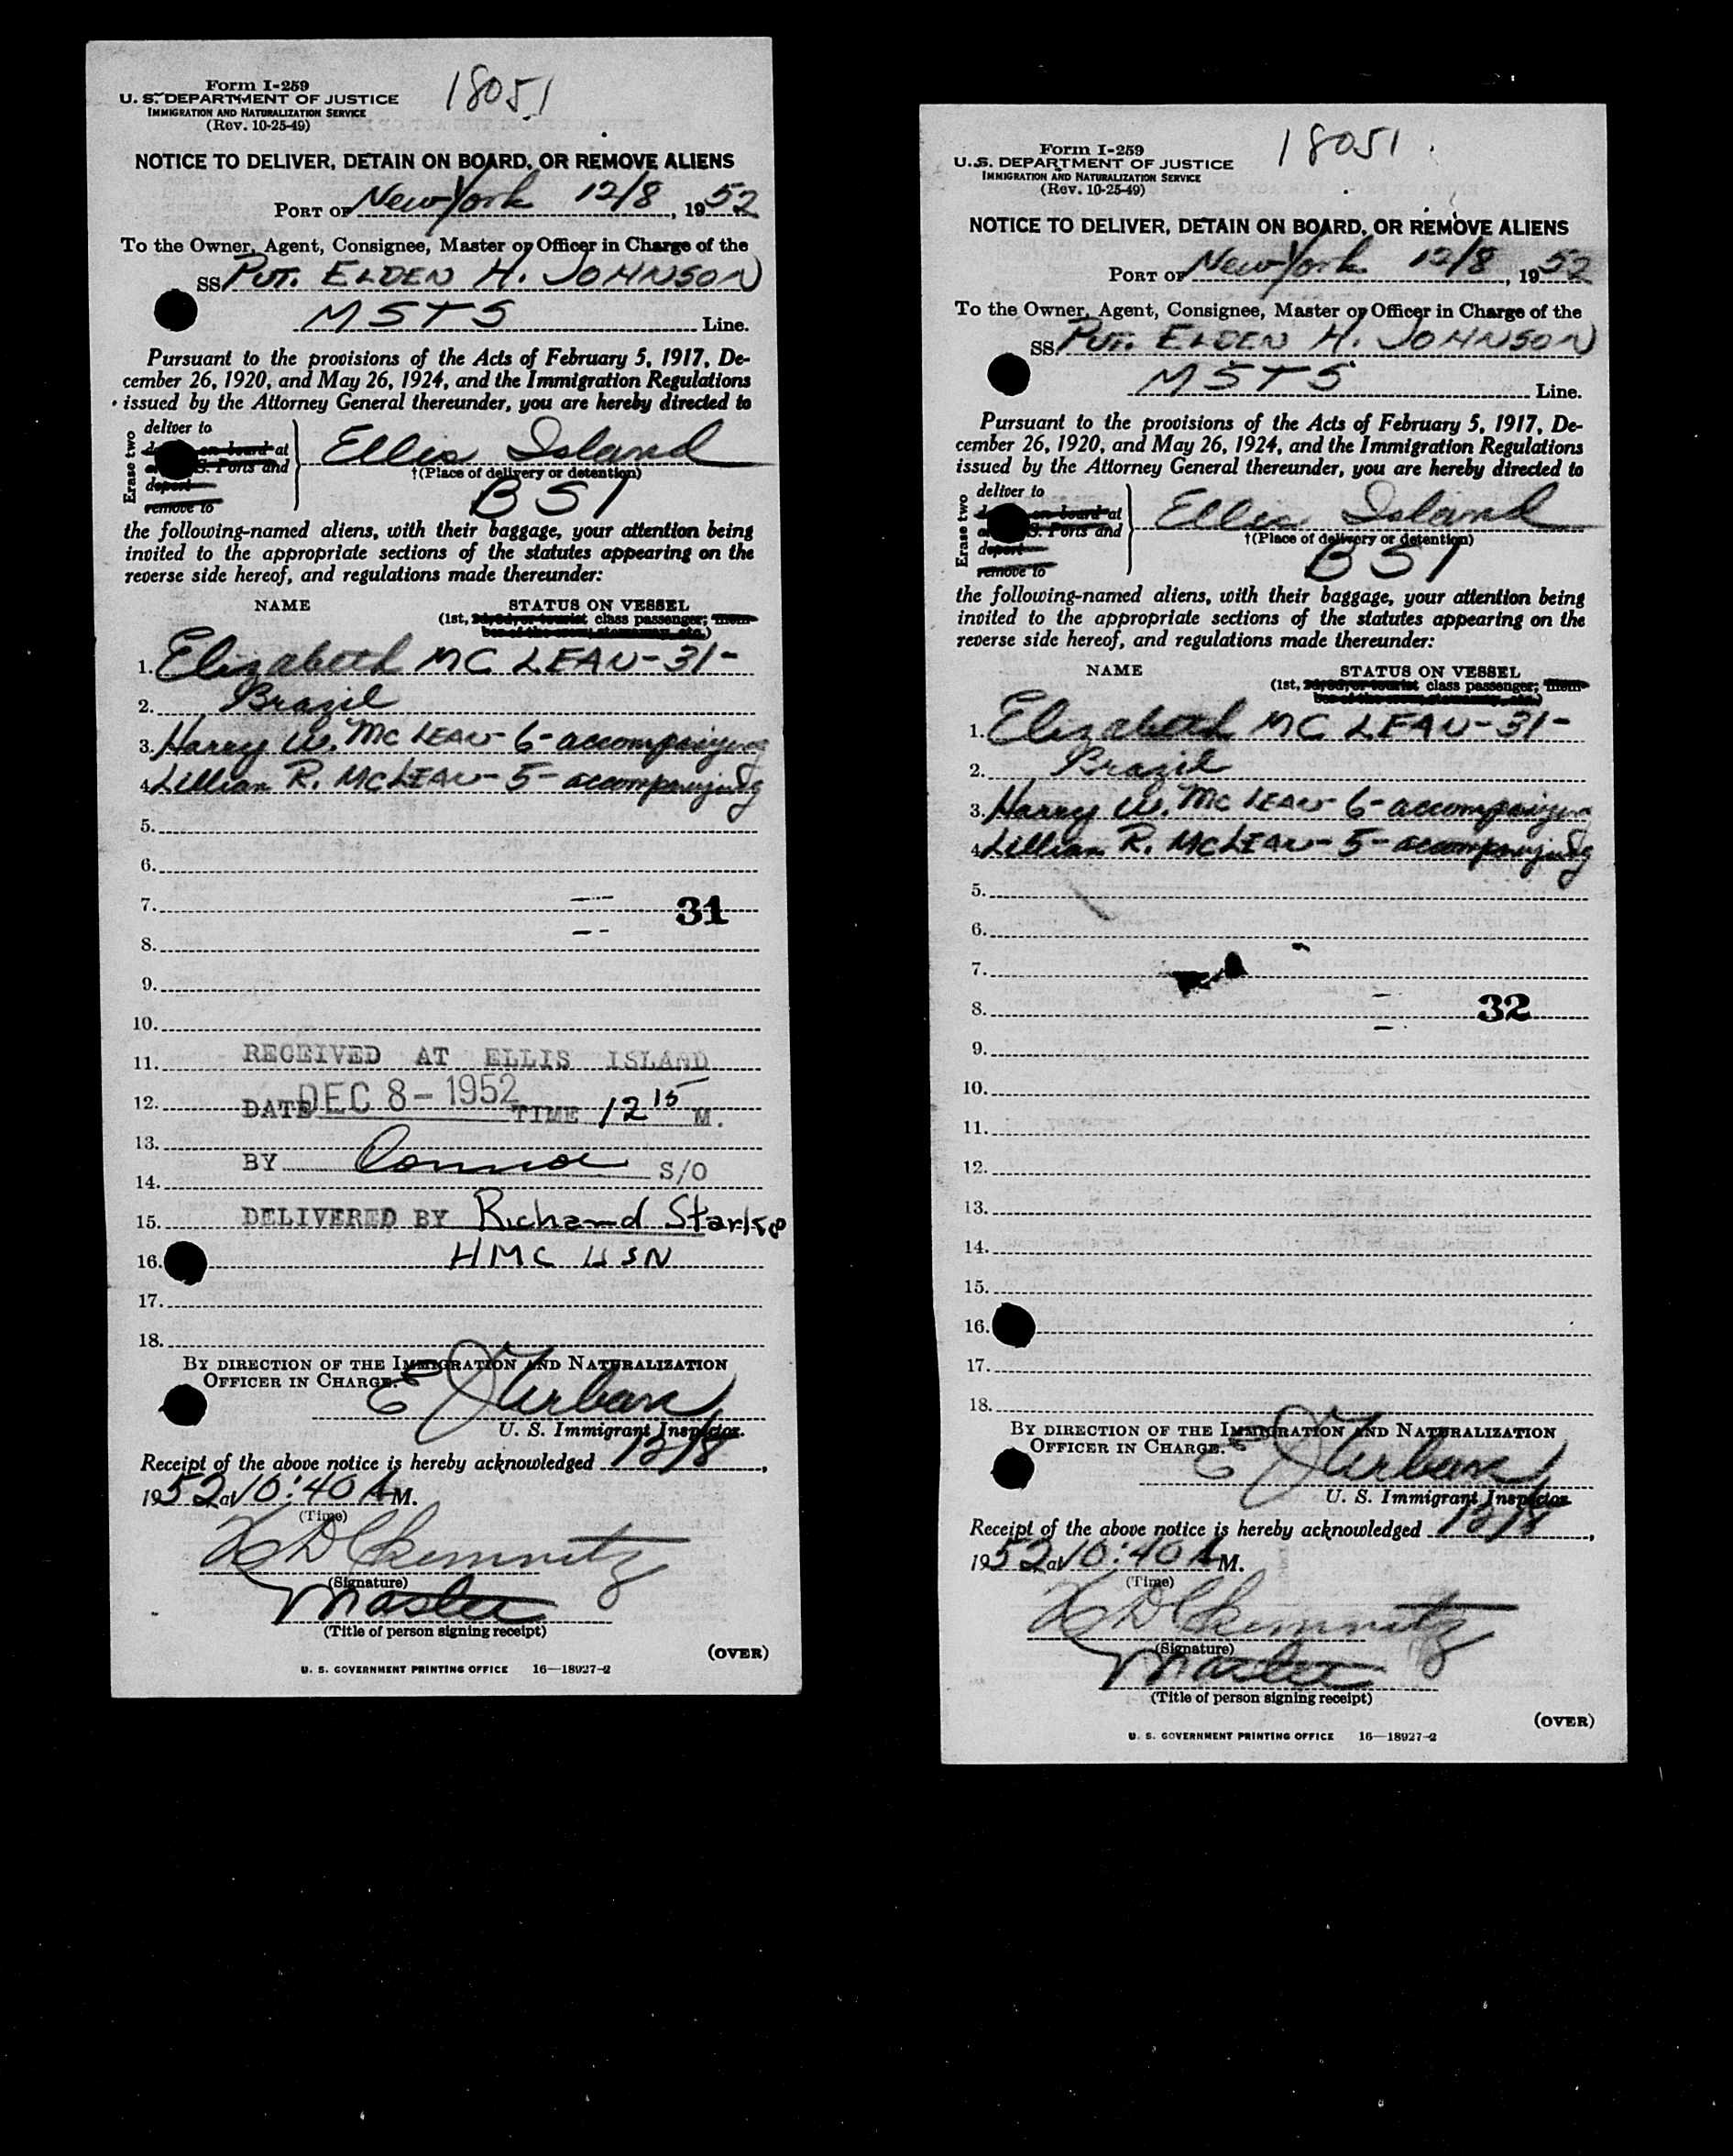 Form I-259
U. S. DEPARTMENT OF JUSTICE
IMMIGRATION AND NATURALIZATION SERVICE
(Rev. 10-25-49)
18051
NOTICE TO DELIVER, DETAIN ON BOARD, OR REMOVE ALIENS
PORT OF New York 12/8, 1952
To the Owner, Agent, Consignee, Master or Officer in Charge of the
SS PVT. ELDEN H. JOHNSON
MSTS Line.
Pursuant to the provisions of the Acts of February 5, 1917, De-
cember 26, 1920, and May 26, 1924, and the Immigration Regulations
issued by the Attorney General thereunder, you are hereby directed to
Erase two
deliver to
on board at
S. Ports and
deport
remove to
Ellis Island
†(Place of delivery or detention)
BSI
the following-named aliens, with their baggage, your attention being
invited to the appropriate sections of the statutes appearing on the
reverse side hereof, and regulations made thereunder:
NAME STATUS ON VESSEL
(1st, 2d, 3d, or tourist class passenger; mem-
ber of the crew, stowaway, etc.)
1. Elizabeth MC LEAN-31-
2. Brazil
3. Harry W. Mc LEAN-6-accompanying
4. Lillian R. MCLEAN-5-accompanying
5.
6.
7. 31
8.
9.
10.
11. RECEIVED AT ELLIS ISLAND
12. DATE DEC 8-1952 TIME 12 15 M.
13.
BY S/O
14.
15. DELIVERED BY Richard Starke
16. HMC USN
17.
18.
BY DIRECTION OF THE IMMIGRATION AND NATURALIZATION
OFFICER IN CHARGE.
E J Urban
U. S. Immigrant Inspector.
Receipt of the above notice is hereby acknowledged 12/8,
1952 at 10:40 A M.
(Time)
Chemnitz
(Signature)
Master
(Title of person signing receipt)
(OVER)
U. S. GOVERNMENT PRINTING OFFICE 16—18927-2
Form I-259
U. S. DEPARTMENT OF JUSTICE
IMMIGRATION AND NATURALIZATION SERVICE
(Rev. 10-25-49)
18051
NOTICE TO DELIVER, DETAIN ON BOARD, OR REMOVE ALIENS
PORT OF New York 12/8, 1952
To the Owner, Agent, Consignee, Master or Officer in Charge of the
SS PVT. ELDEN H. JOHNSON
MSTS Line.
Pursuant to the provisions of the Acts of February 5, 1917, De-
cember 26, 1920, and May 26, 1924, and the Immigration Regulations
issued by the Attorney General thereunder, you are hereby directed to
Erase two
deliver to
on board at
S. Ports and
deport
remove to
Ellis Island
†(Place of delivery or detention)
BSI
the following-named aliens, with their baggage, your attention being
invited to the appropriate sections of the statutes appearing on the
reverse side hereof, and regulations made thereunder:
NAME STATUS ON VESSEL
(1st, 2d, 3d, or tourist class passenger; mem-
ber of the crew, stowaway, etc.)
1. Elizabeth MC LEAN-31-
2. Brazil
3. Harry W. Mc LEAN-6-accompanying
4. Lillian R. MCLEAN-5-accompanying
5.
6.
7.
8. 32
9.
10.
11.
12.
13.
14.
15.
16.
17.
18.
BY DIRECTION OF THE IMMIGRATION AND NATURALIZATION
OFFICER IN CHARGE.
E J Urban
U. S. Immigrant Inspector.
Receipt of the above notice is hereby acknowledged 12/8,
1952 at 10:40 A M.
(Time)
Chemnitz
(Signature)
Master
(Title of person signing receipt)
(OVER)
U. S. GOVERNMENT PRINTING OFFICE 16—18927-2